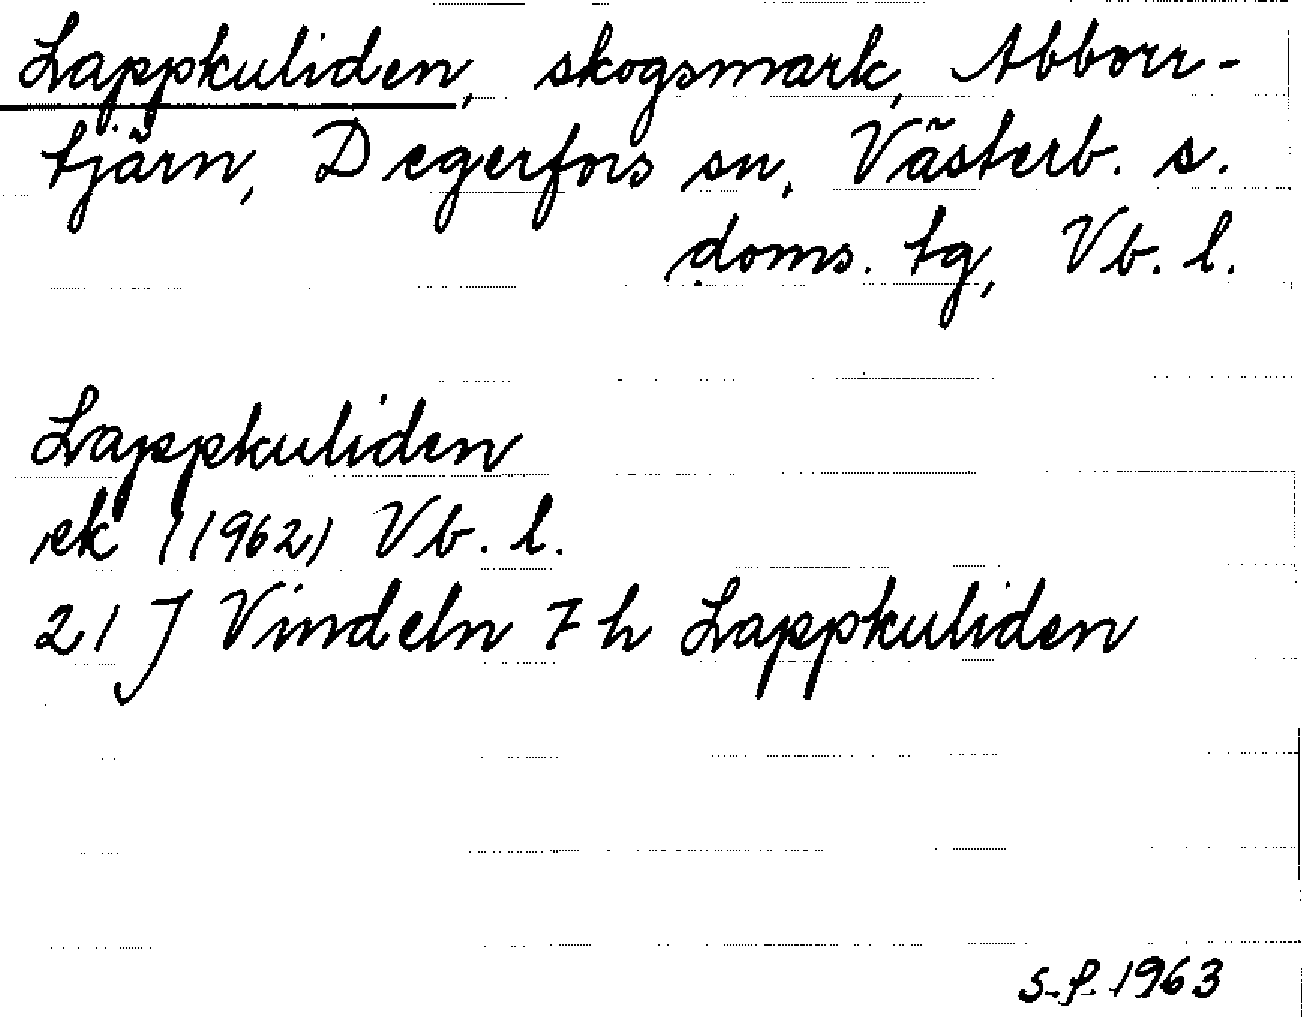 Lappkuliden, skogsmark, Abborr-
tjärn, Degerfors sn, Västerb. s.
doms. tg, Vb. l.
Lappkuliden
ek (1962) Vb. l.
21 J Vindeln 7 h Lappkuliden
S.f. 1963